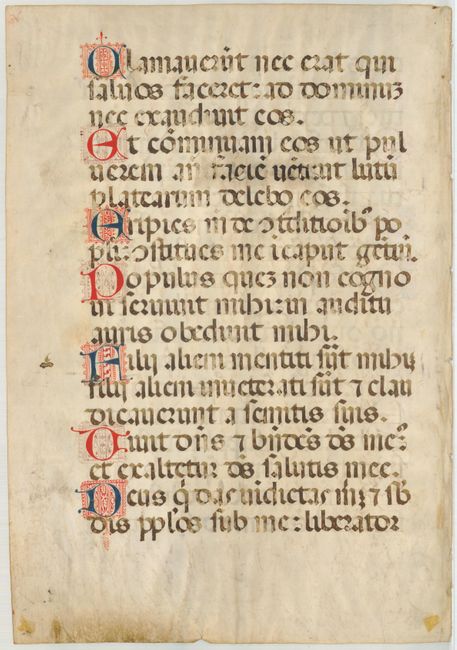 Clamauerūt nec erat qui
saluos faceret: ad dominuꝫ
nec exaudiuit eos.
Et cōminuam eos ut pul
uerem an̄ faciē uēti: ut lutū
platearum delebo eos.
Eripies me de ↄtᵃditioībꝰ po
puli: ↄstitues me ī caput gētiū.
Populus queꝫ non cogno
ui seruiuit mihi: in auditu
auris obediuit mihi.
Filij alieni mentiti sūt mihi
filij alieni inueterati sūt ⁊ clau
dicauerunt a semitis suis.
Uiuit dn̄s ⁊ bn̄dcs ds̄ meꝰ:
et exaltetur ds̄ salutis mee.
Deus q̇ das uindictas m̄ ⁊ sb̄
dis pplōs sub me: liberator